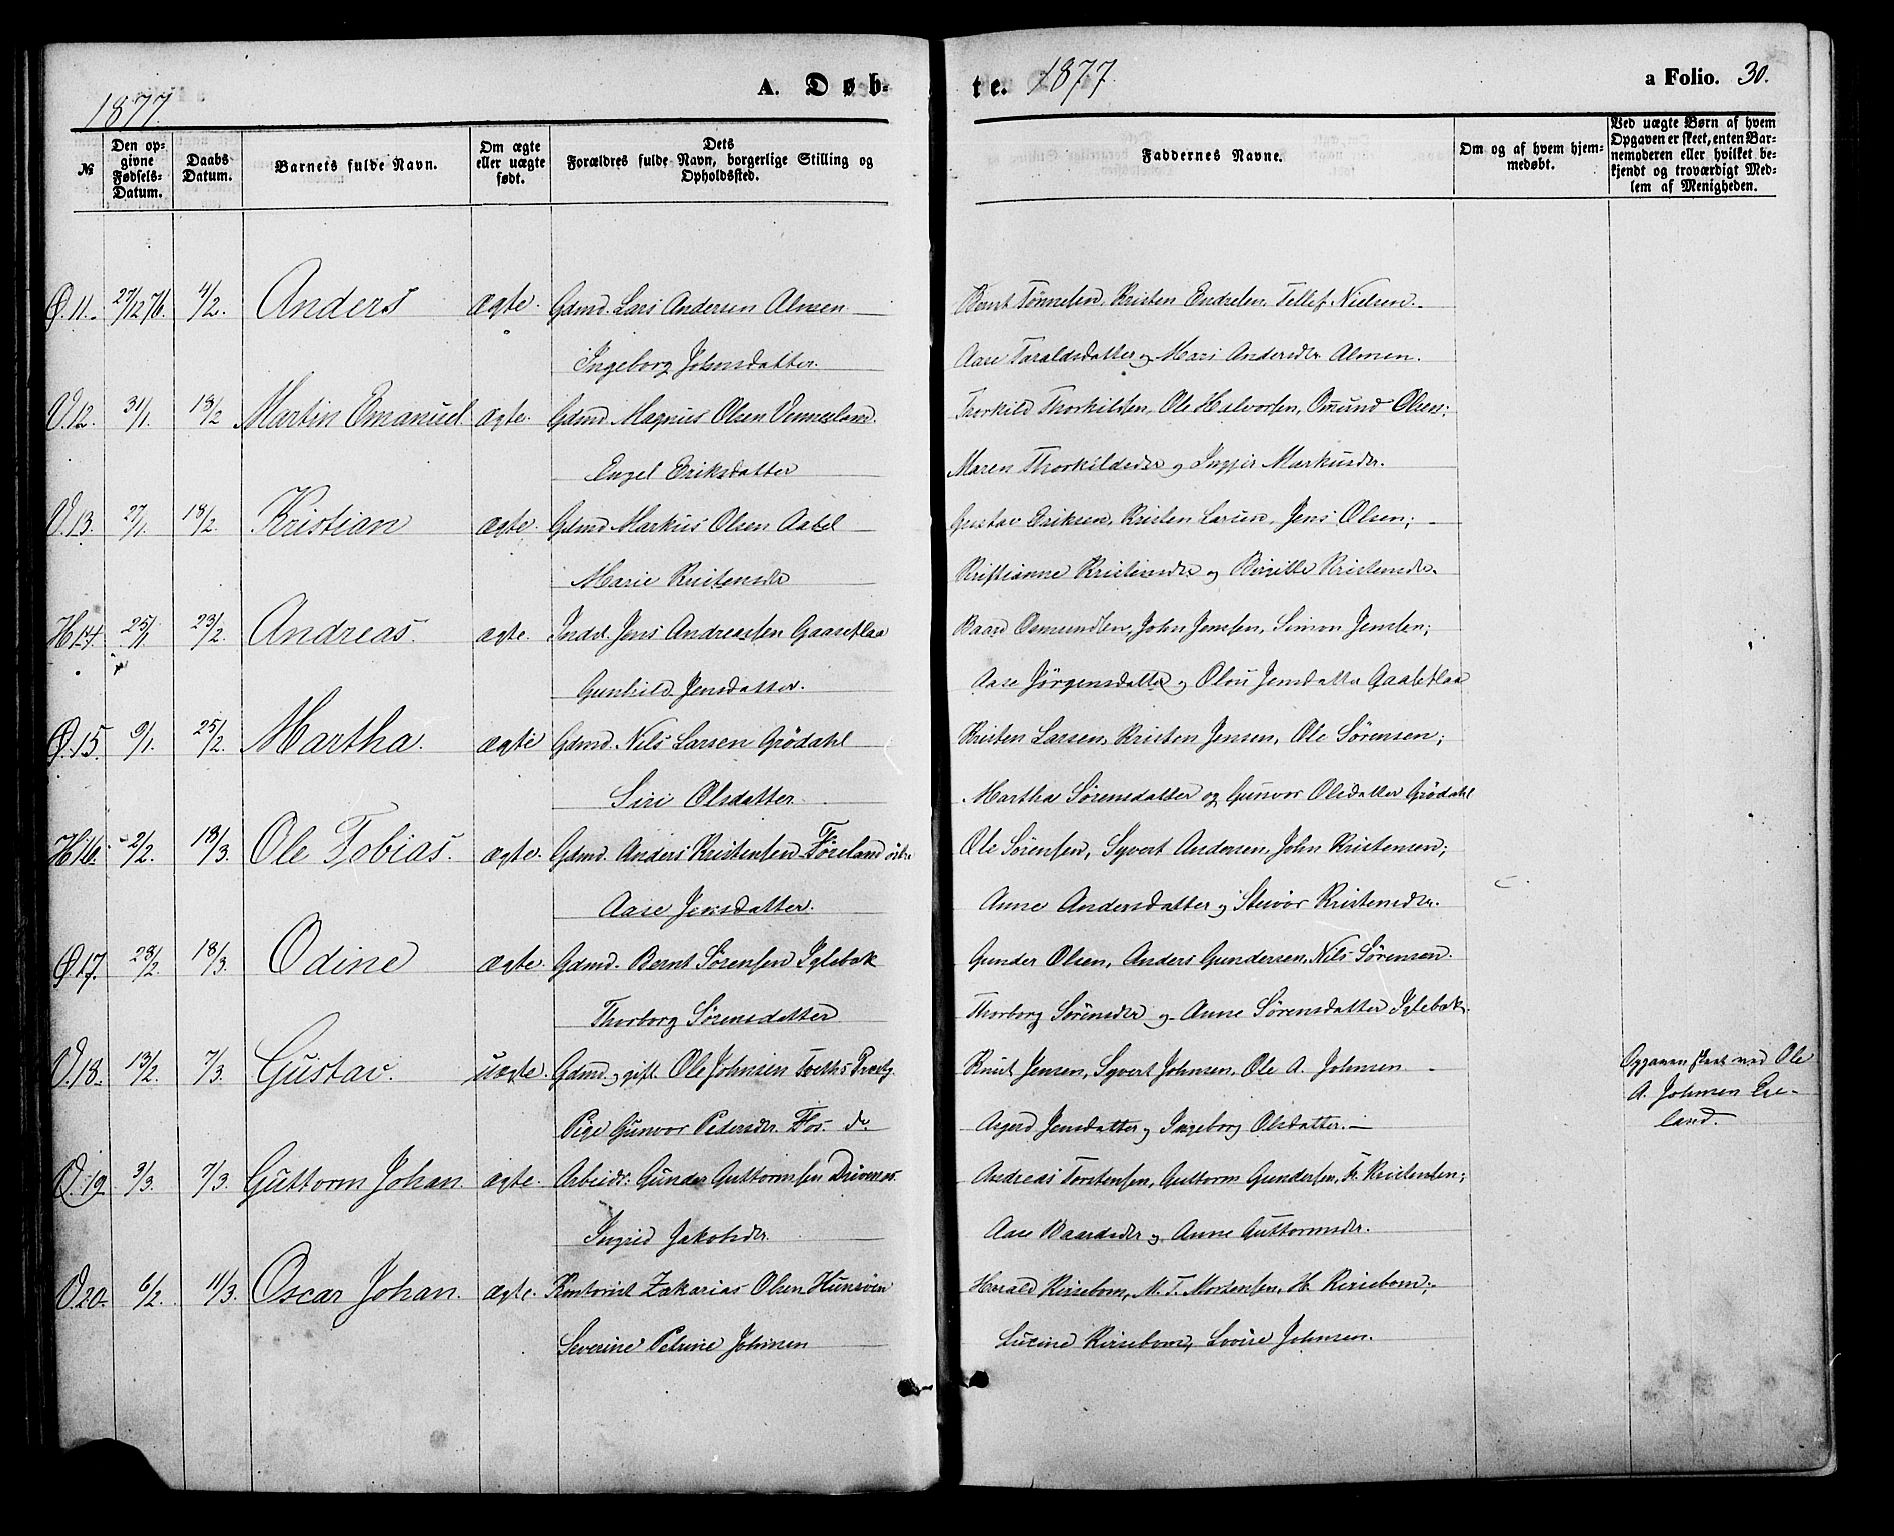 1877. A. Døb-
№
Den op-
givne
Fødsels-
Datum.
Daabs
Datum.
Barnets fulde Navn.
Om ægte
eller uægte
født.
Dets
Forældres fulde Navn, borgerlige Stilling og
Opholdssted.
Ø.11. 27/12 76. 4/2. Anders ægte. Gdmd. Lars Andersen Almen
Ingeborg Johnsdatter.
V.12. 31/1. 18/2 Martin Emanuel ægte. Gdmd. Magnus Olsen Vennesland.
Engel Eriksdatter
V.13. 27/1. 18/2. Kristian ægte. Gdmd Markus Olsen
Marie Kristensdr
H.14. 25/1. 23/2. Andreas. ægte. Indst. Jens Andreassen Gaaseflaa
Gunhild Jensdatter.
Ø.15. 9/1. 25/2. Martha. ægte Gdmd. Nils Larsen Grödahl
Siri Olsdatter.
H.16. 2/2. 18/3. Ole Tobias. ægte. Gdmd. Anders Kristensen Föreland
Aase Jensdatter.
Ø.17. 28/2. 18/3. Odine ægte. Gdmd. Bernt Sörensen Iglebæk
Thorborg Sörensdatter
V.18. 13/2. 7/3. Gustav. uægte. Gdmd. og gift Ole Johnsen
Pige Gunvor Pedersdr. Fos. do
Ø.19 3/3. 7/3. Guttorm Johan. ægte. Arbeidr. Gunder Guttormsen Drivenes.
Ingrid Jakobsdr.
V.20. 6/2. 11/3. Oscar Johan. ægte. Kontorist Zakarias Olsen Hunsöen
Severine Petrine Johnsen
te. 1877. a Folio. 30.
Faddernes Navne.
Om og af hvem hjem-
medøbt.
Ved uægte Børn af hvem
Opgaven er skeet, enten Bar-
nemoderen eller hvilket be-
kjendt og troværdigt Med-
lem af Menigheden.
Bernt Tönnesen, Kristen Endresen, Tellef Nielsen
Aase Taraldsdatter og Mari Andersdr Almen.
Thorkild Thorkildsen, Ole Halvorsen, Omund Olsen;
Maren Thorkildsdr og Ingjer Markusdr.
Gustav Eriksen, Kristen Larsen, Jens Olsen;
Kristianne Kristensdr og Birgitte Kristensdr.
Baard Osmundsen, John Jensen, Simon Jensen;
Aase Jörgensdatter og Olou Jensdatter Gaaseflaa
Kristen Larsen, Kristen Jensen, Ole Sörensen;
Martha Sörensdatter og Gunvor Olsdatter Grödahl
Ole Sörensen, Syvert Andersen, John Kristensen;
Anne Andersdatter og Steivor Kristensdr.
Gunder Olsen, Anders Gundersen, Nils Sörensen.
Thorborg Sörensdr og Anne Sörensdatter Iglebæk.
Knut Jensen, Syvert Johnsen, Ole A. Johnsen
Asgerd Jensdatter og Ingeborg Olsdatter.
Opgaven skeet ved Ole
A. Johnsen Ese-
land.
Andreas Torstensen, Guttorm Gundersen, Fr. Kristensen;
Aase Baardsdr og Anne Guttormsdr.
Harald Kirsebom, M. T. Mortensen, H. Kirsebom;
Lucine Kirsebom, Lovise Johnsen.